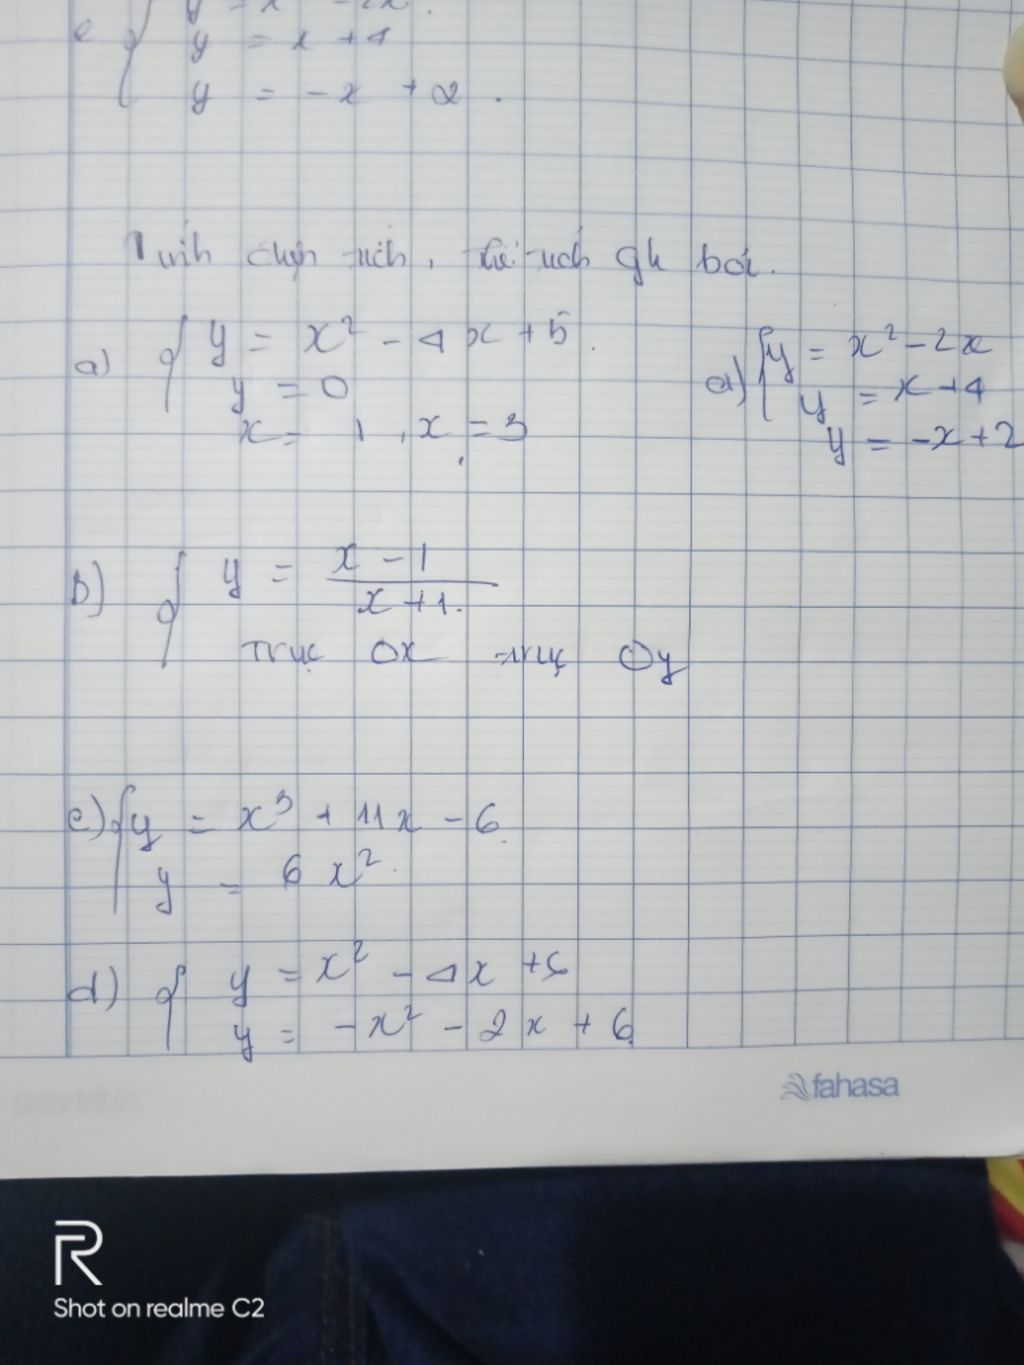 y = x - 2x.
e y = x + 4
y = -x + 2.
Tính diện tích, thể tích gh bởi.
a) y = x² - 4x + 5.
y = 0
x = 1, x = 3
d) y = x² - 2x
y = x + 4
y = -x + 2
b) y = x - 1 / x + 1.
Trục Ox trục Oy
c) y = x³ + 11x - 6.
y = 6x².
d) y = x² - 4x + 5
y = -x² - 2x + 6
fahasa
R
Shot on realme C2